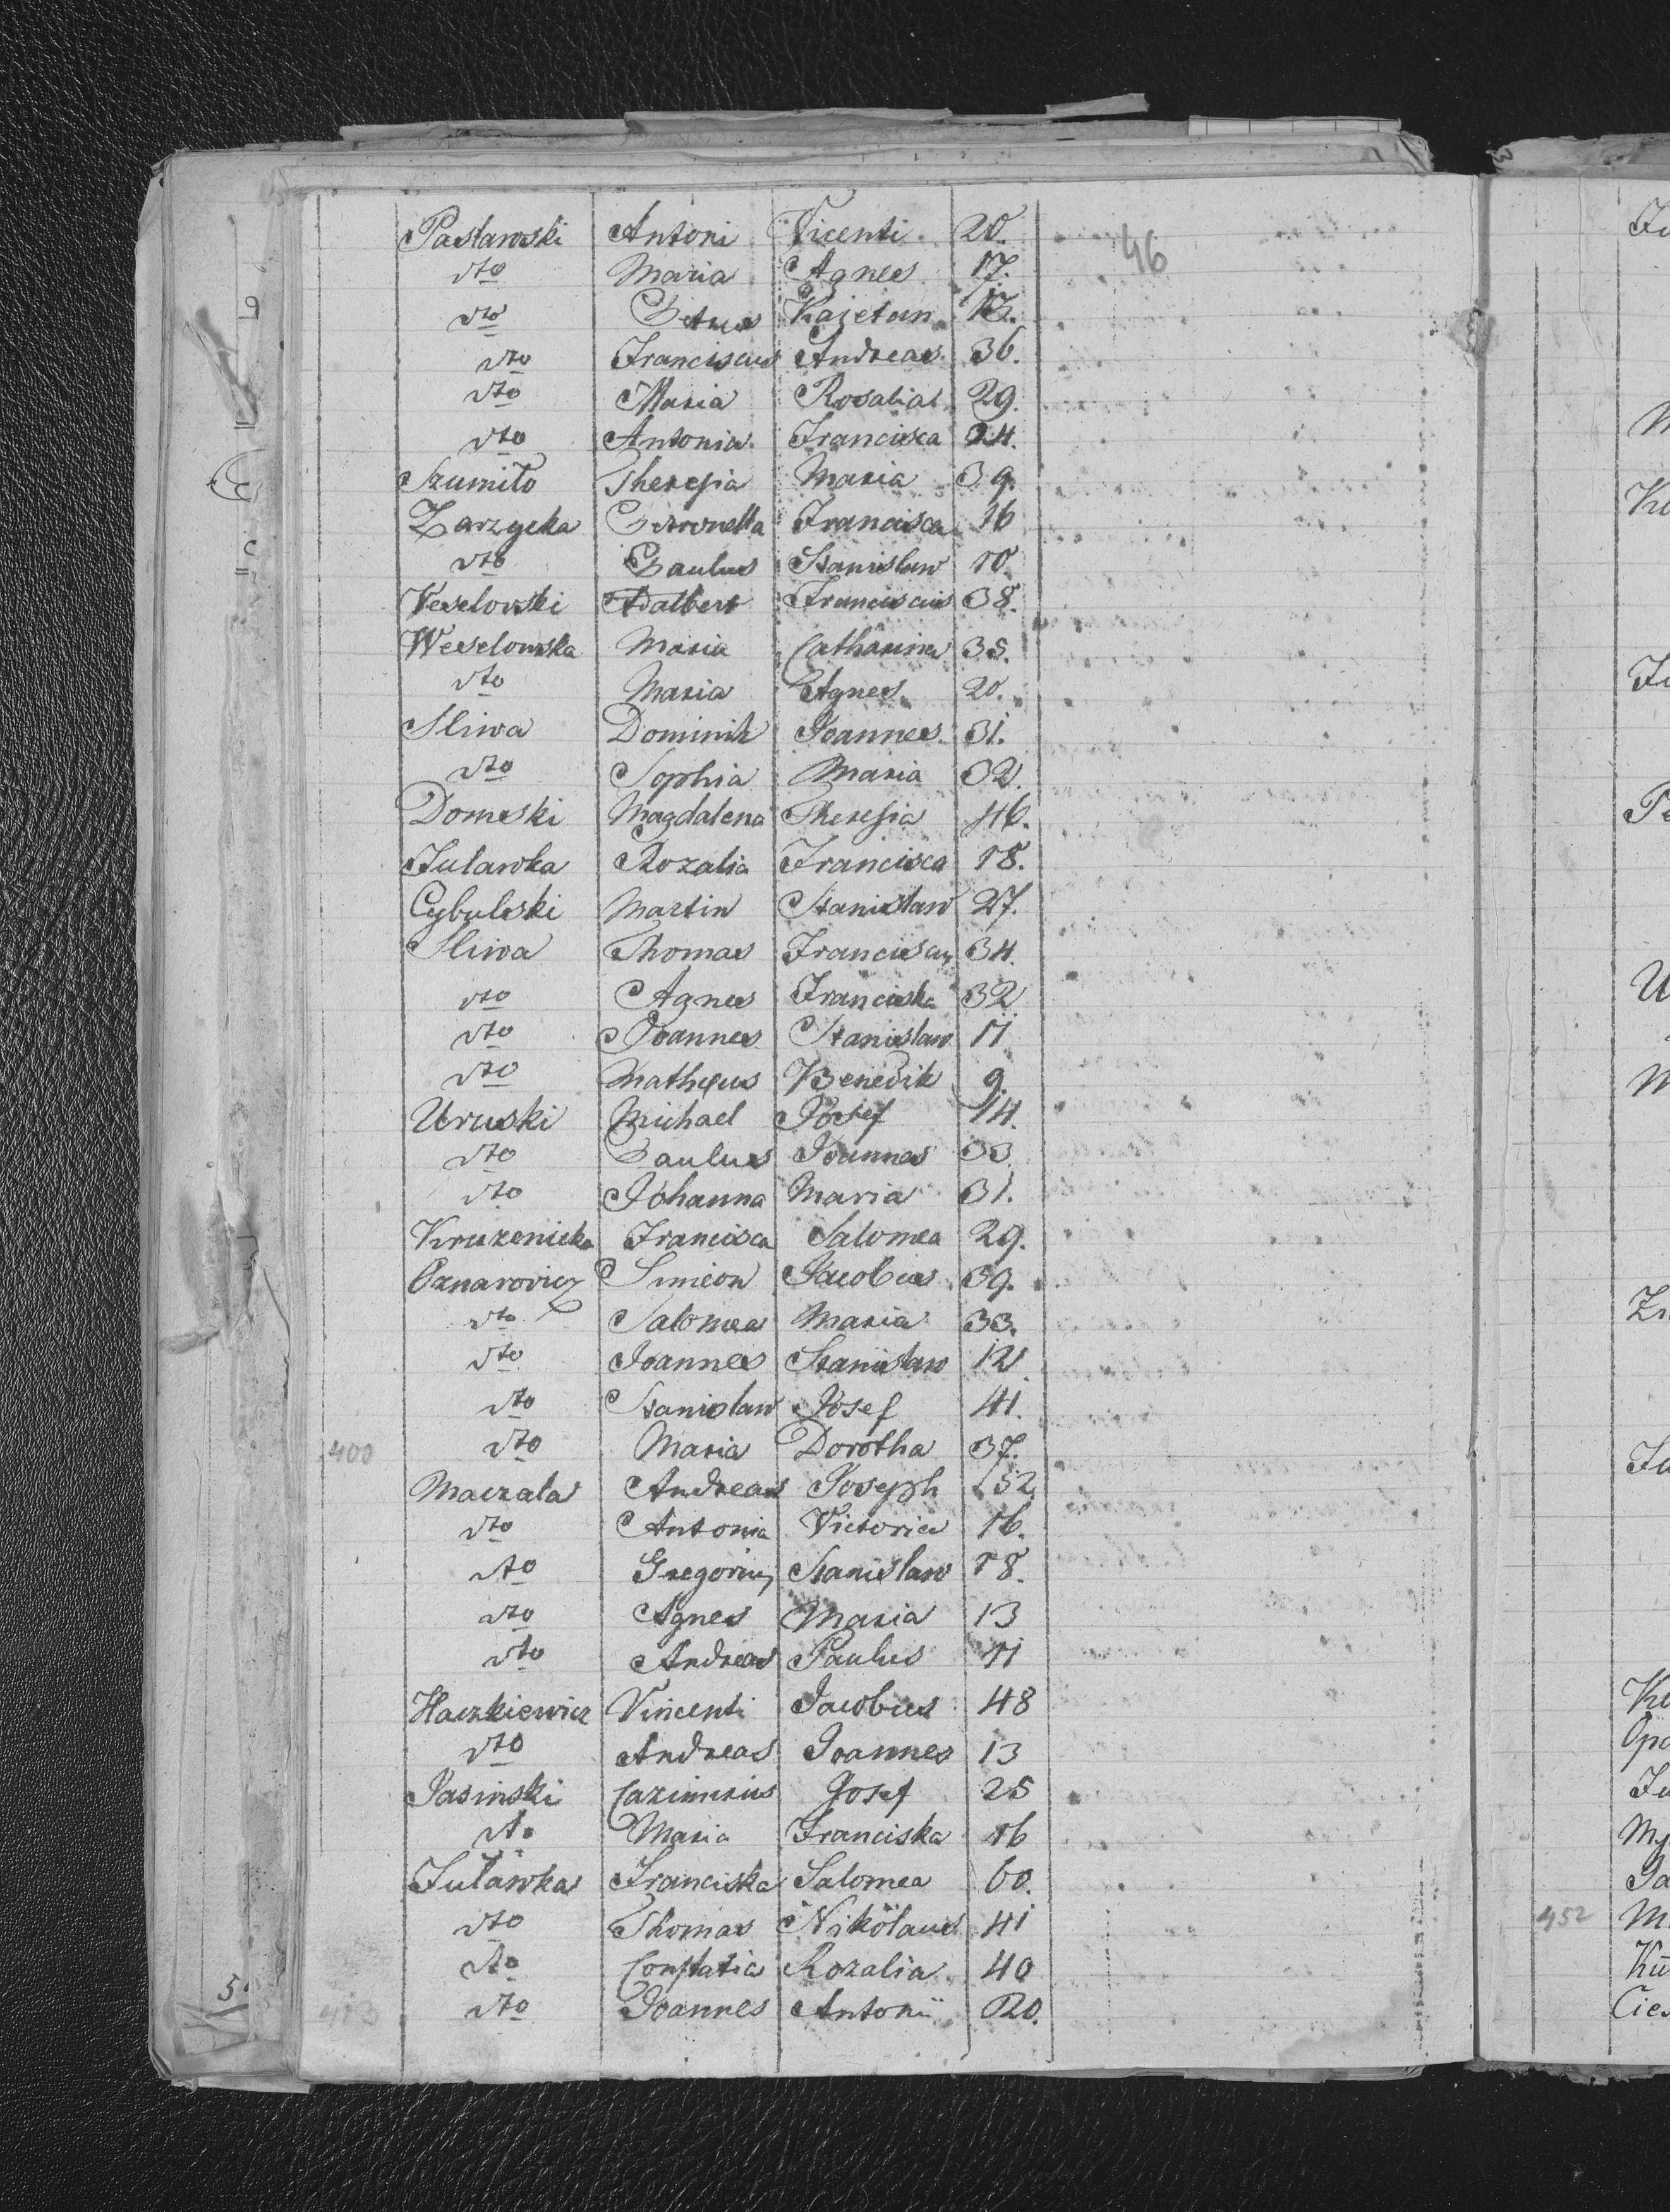 46
Pasławski Antoni Vicenti 20.
dto Maria Agnes 17.
dto Petrus Kajetan
dto Franciscus Andreas 36.
dto Maria Rosalia 29.
dto Antonia Francisca 24.
Szumiło Theresia Maria 39.
Zarzycka Petronella Francisca 16
dto Paulus Stanislaw 10.
Veselovski Adalbert Franciscus 38.
Weselowska Maria Catharina 35.
dto Maria Agnes 20.
Sliwa Dominik Joannes 31.
dto Sophia Maria 32.
Domeski Magdalena Theresia 46.
Julawka Rozalia Francisca 18.
Cybulski Martin Stanislaw 27.
Sliwa Thomas Franciscus 34.
dto Agnes Franciska 32
dto Joannes Stanislaw 11
dto Matheus Benedik 9.
Uruski Michael Josef 14.
dto Paulus Joannes 33
dto Johanna Maria 31.
Kruzenicka Francisca Salomea 29.
Oznarovicz Simeon Jacobus 39.
dto Salomea Maria 33.
dto Joannes Stanislaw 12
dto Stanislaw Josef 41.
400 dto Maria Dorotha 37.
Maczala Andreas Joseph 52.
dto Antonia Victoria 16.
dto Gregorius Stanislaw 18.
dto Agnes Maria 13
dto Andreas Paulus 11
Haczkiewicz Vincenti Jacobus 48
dto Andreas Joannes 13
Jasinski Cazimirus Josef 25
dto Maria Franciska 16
Julawka Franciska Salomea 60.
dto Thomas Nikolaus 41
dto Constatia Rozalia 40
413 dto Joannes Antonii 20.
452